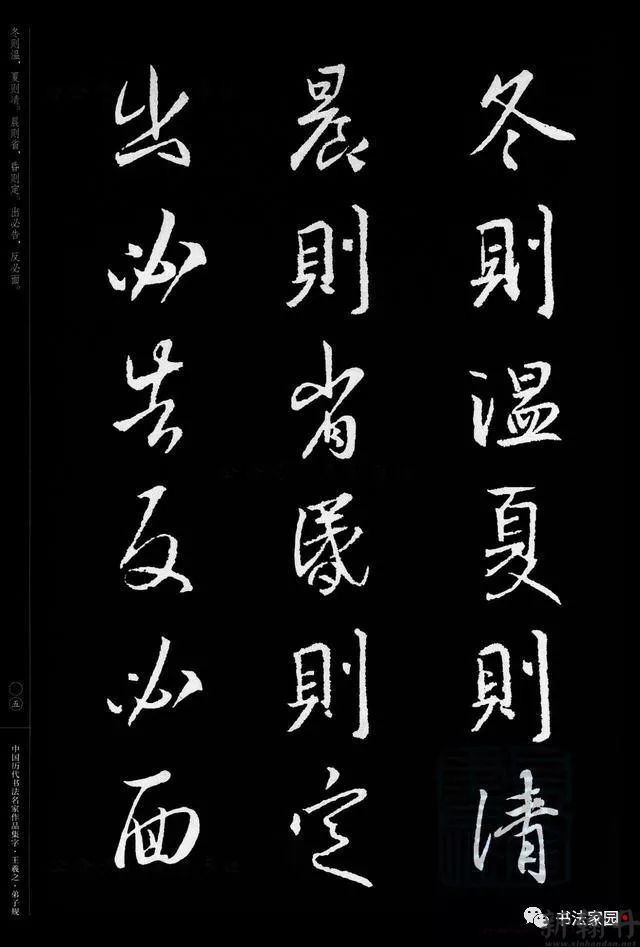 冬則溫夏則清
晨則省昏則定
出必告反必面
冬则温，夏则清。晨则省，昏则定。出必告，反必面。
〇五
中国历代书法名家作品集字·王羲之·弟子规
书法家园
新翰丹
www.xinhandan.net